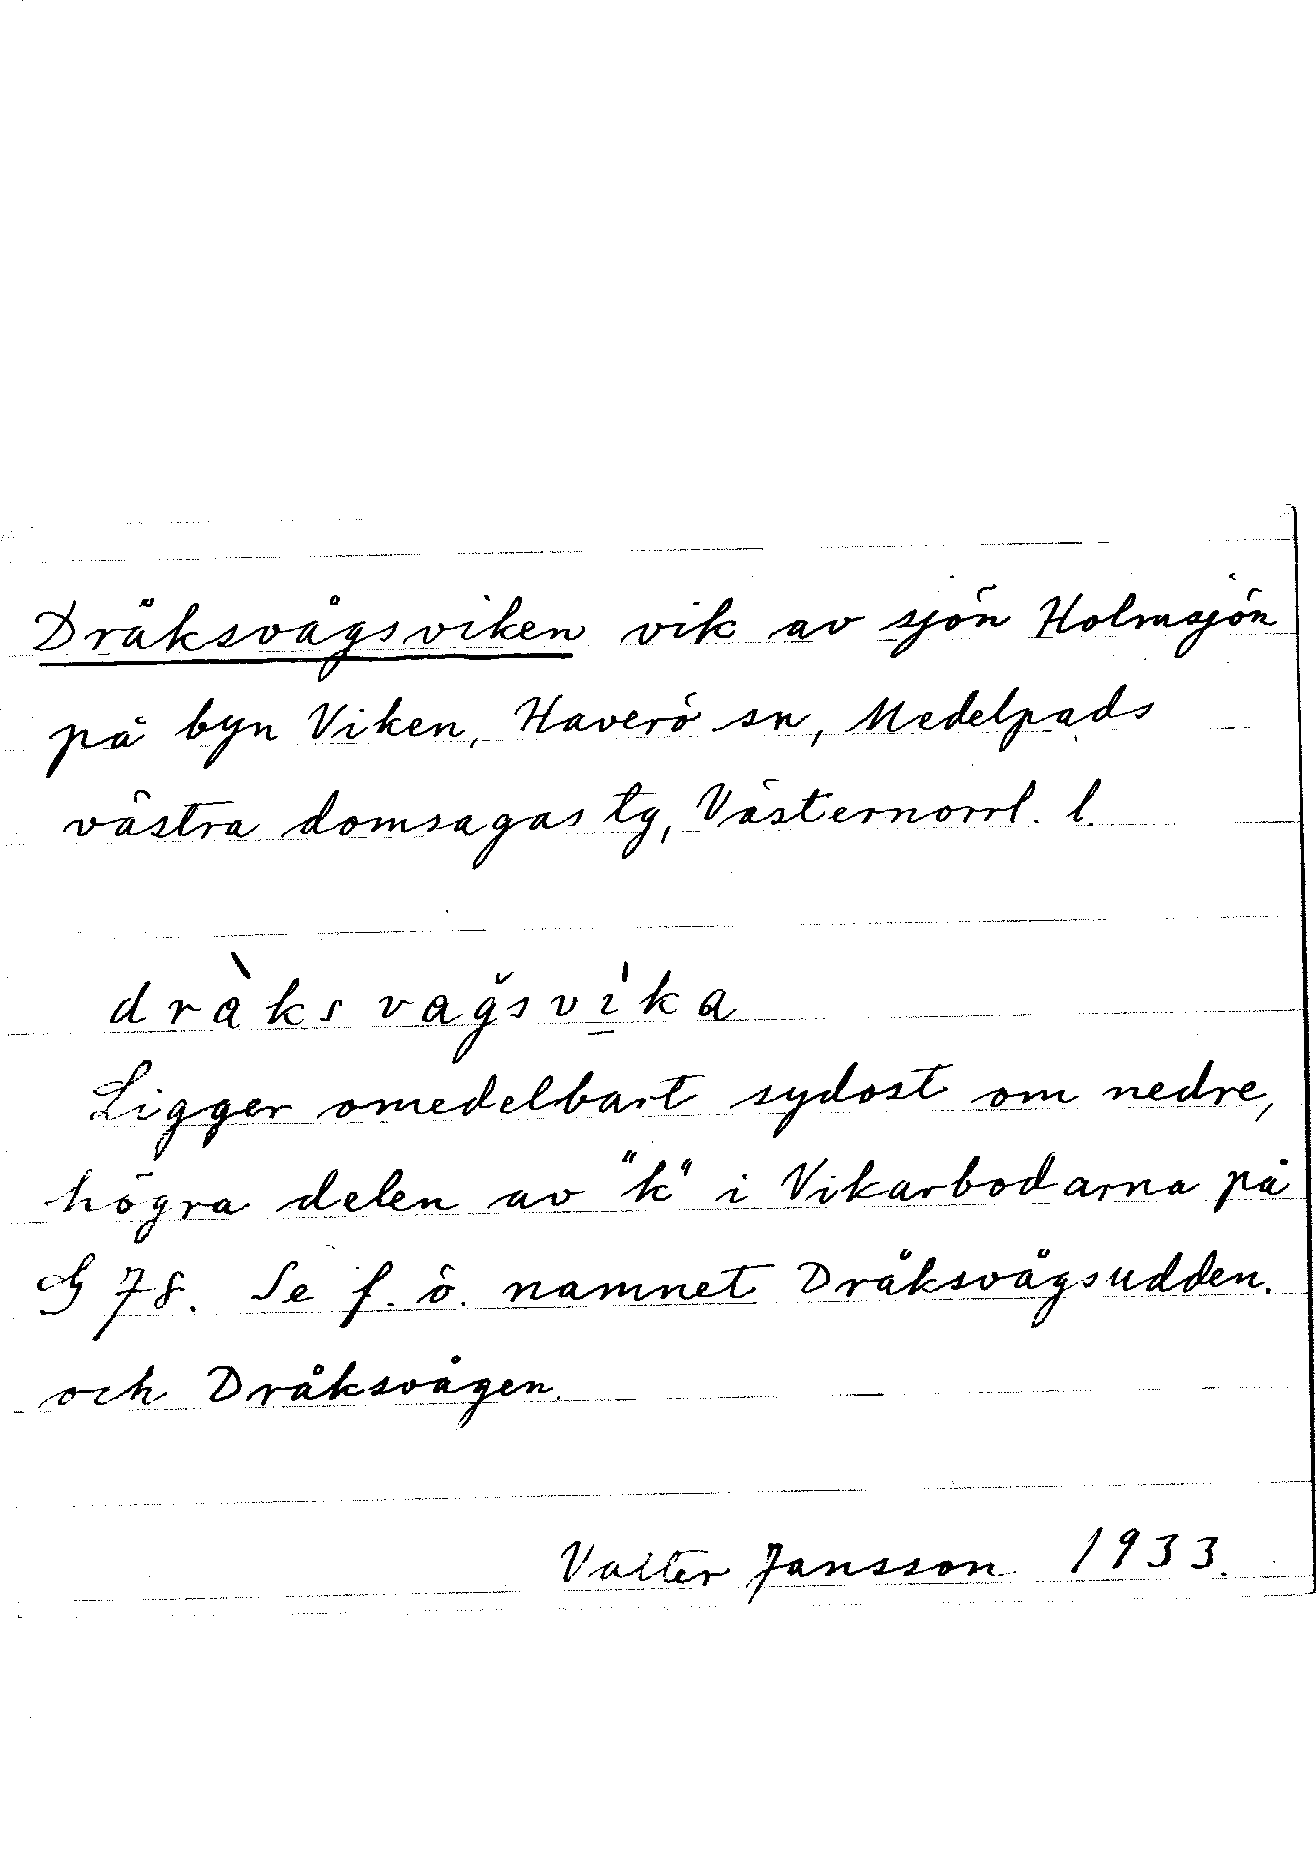 Dråksvågsviken vik av sjön Holmsjön
på byn Viken, Haverö sn, Medelpads
västra domsagas tg, Västernorrl. l.
dràksvaǧsvi̠ka
Ligger omedelbart sydost om nedre,
högra delen av "k" i Vikarbodarna på
G 78. Se f. ö. namnet Dråksvågsudden.
och Dråksvågen.
Valter Jansson 1933.